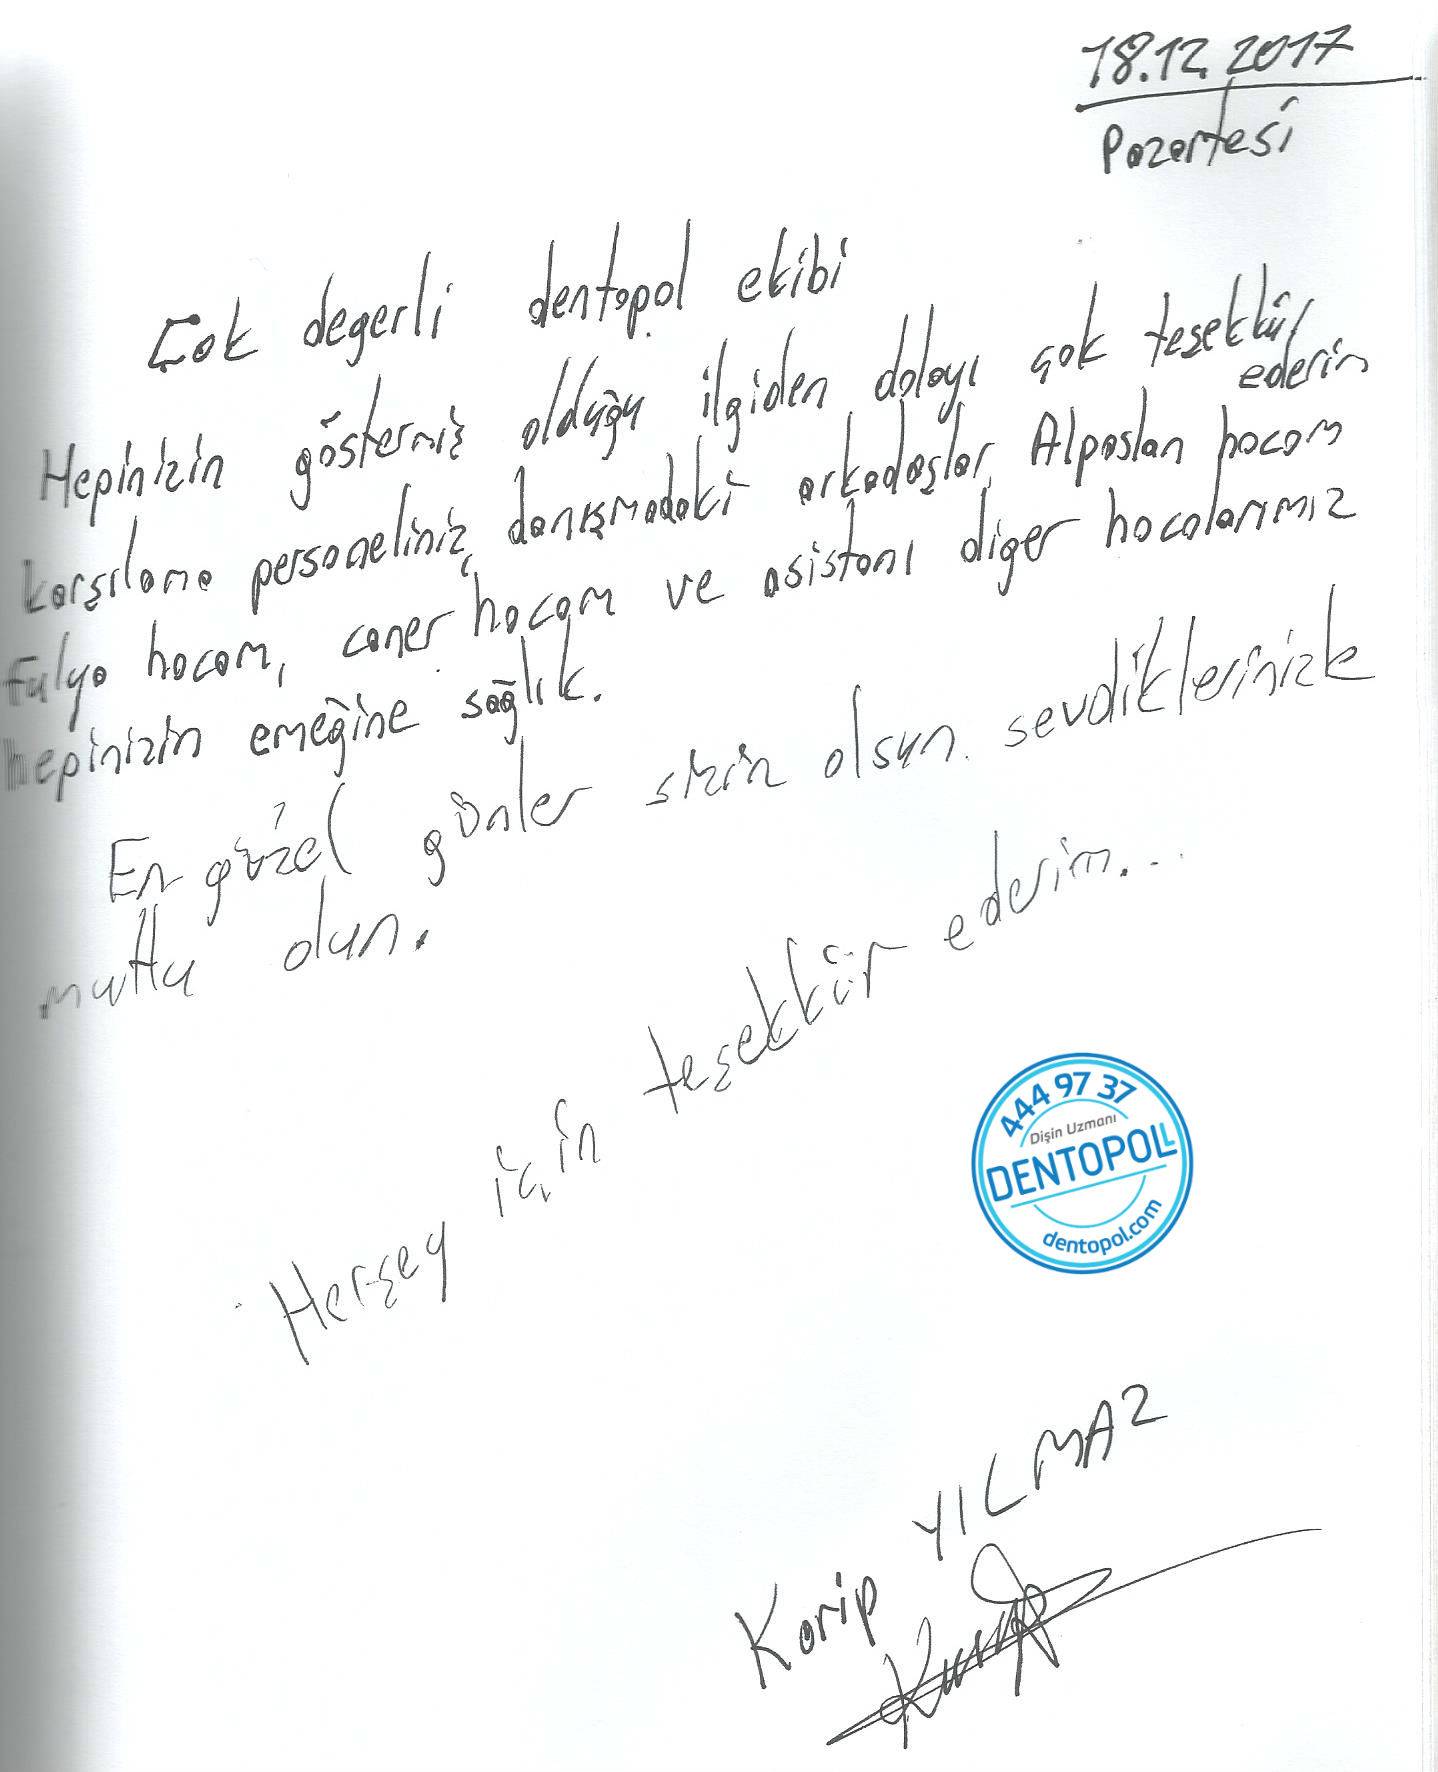 18.12.2017
Pazartesi
Çok degerli dentopol ekibi
Hepinizin göstermiş olduğu ilgiden dolayı çok teşekkür
ederim
karşılama personeliniz, danışmadaki arkadaşlar, Alpaslan hocam
Fulya hocam, caner hocam ve asistanı diger hocalarımız
hepinizin emeğine sağlık.
En güzel günler sizin olsun. sevdiklerinizle
mutlu olun.
Herşey için teşekkür ederim...
444 97 37
Dişin Uzmanı
DENTOPOL
dentopol.com
Karip YILMAZ